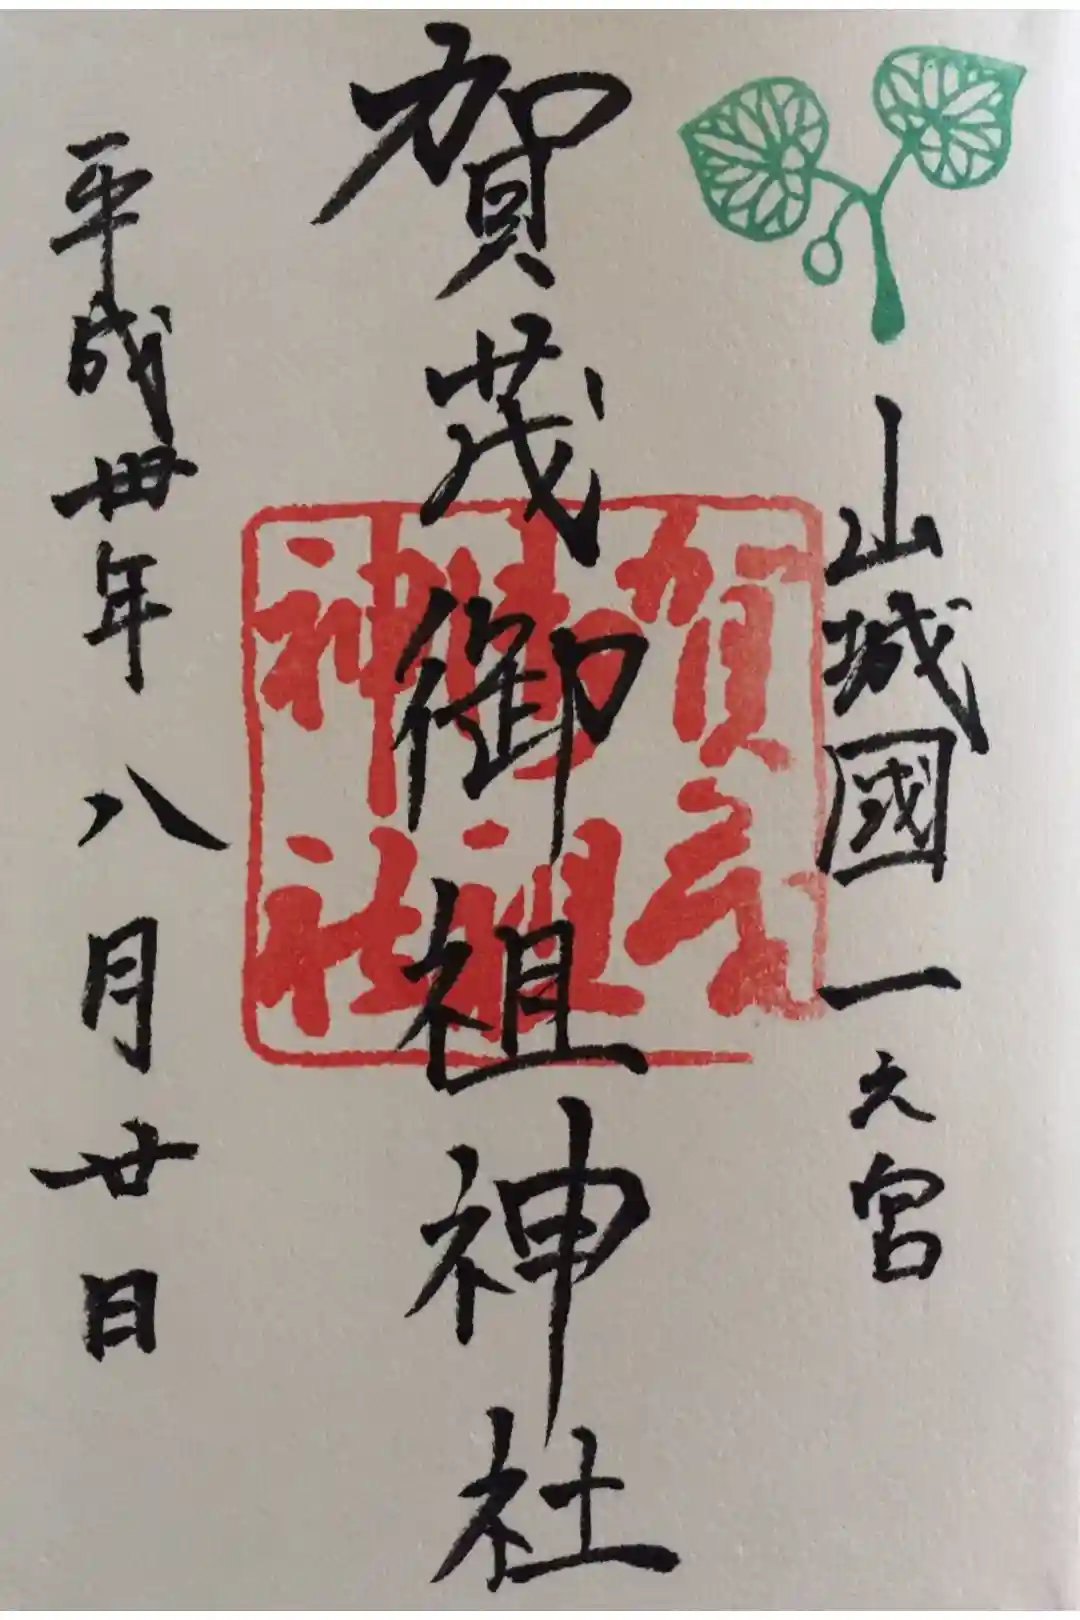 山城國一之宮
賀茂御祖神社
賀茂
御祖
神社
平成卅年八月廿日